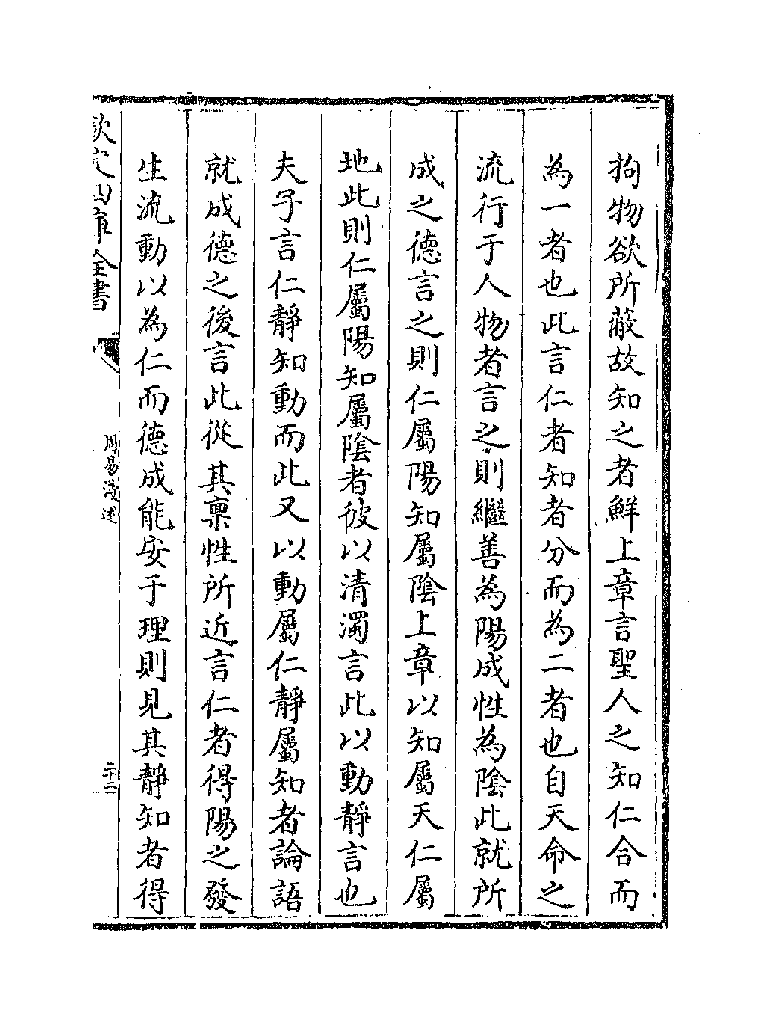 拘物欲所蔽故知之者鮮上章言聖人之知仁合而
為一者也此言仁者知者分而為二者也自天命之
流行于人物者言之則繼善為陽成性為陰此就所
成之德言之則仁屬陽知屬陰上章以知屬天仁屬
地此則仁屬陽知屬陰者彼以清濁言此以動靜言也
夫子言仁靜知動而此又以動屬仁靜屬知者論語
就成德之後言此從其稟性所近言仁者得陽之發
生流動以為仁而德成能安于理則見其靜知者得
欽定四庫全書
周易淺述
二十二